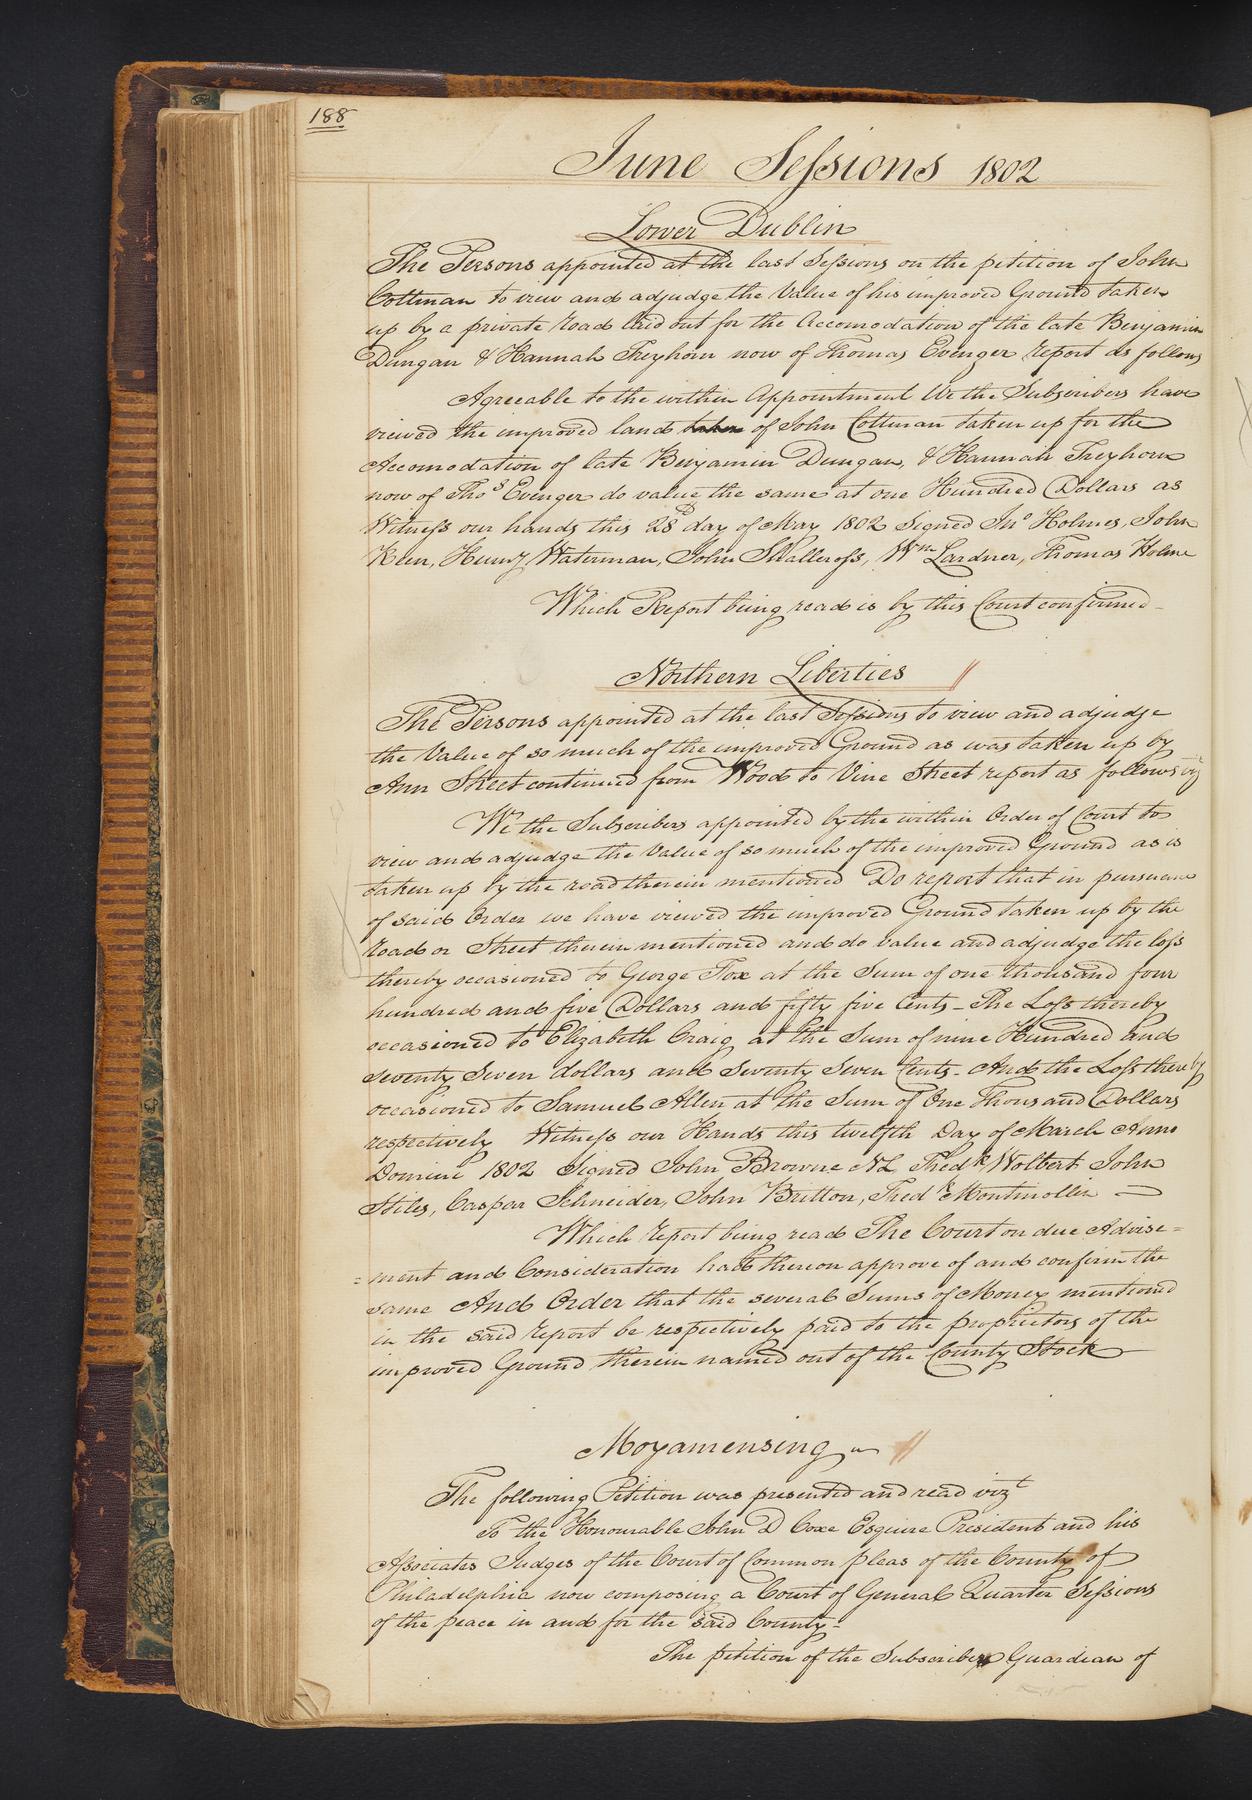 188
June Sessions 1802
Lower Dublin
The Persons appointed at the last Sessions on the petition of John
Cottman to view and adjudge the Value of his improved Ground taken
up by a private road laid out for the Accomodation of the late Benjamin
Dungan & Hannah Treyhorn now of Thomas Evenger report as follows
Agreeable to the within Appointment We the Subscribers have
viewed the improved land taken of John Cottman taken up for the
Accomodation of late Benjamin Dungan, & Hannah Treyhorn
now of Thos Evenger do value the same at one Hundred Dollars as
Witness our hands this 28d day of May 1802 Signed Jno Holmes, John
Keen, Huny Waterman, John Shallcross, Wm Lardner, Thomas Holme
Which Report being read is by this Court confirmed
Northern Liberties //
The Persons appointed at the last Sessions to view and adjudge
the Value of so much of the improved Ground as was taken up by
Ann Street continued from Wood to Vine Street report as follows viz
We the Subscribers appointed by the within Order of Court to
view and adjudge the Value of so much of the improved Ground as is
taken up by the road therein mentioned Do report that in pursuance
of said Order we have viewed the improved Ground taken up by the
road or Street therein mentioned and do value and adjudge the loss
thereby occasioned to George Fox at the Sum of one thousand four
hundred and five Dollars and fifty five Cents - The Loss thereby
occasioned to Elizabeth Craig at the Sum of nine Hundred and
seventy Seven dollars and Seventy Seven Cents - And the Loss thereby
occasioned to Samuel Allen at the Sum of One Thousand Dollars
respectively Witness our Hands this twelfth Day of March Anno
Domini 1802 Signed John Browne NL Fredk Wolbert John
Stiles, Caspar Schneider, John Britton, Fredk Montmollin
Which report being read The Court on due Advise=
=ment and Consideration had thereon approve of and confirm the
same And Order that the several Sums of Money mentioned
in the said report be respectively paid to the proprietors of the
improved Ground therein named out of the County Stock
Moyamensing //
The following Petition was presented and read vizt
To the Honourable John D Coxe Esquire President and his
Associates Judges of the Court of Common pleas of the County of
Philadelphia now composing a Court of General Quarter Sessions
of the peace in and for the said County-
The petition of the Subscriber Guardian of